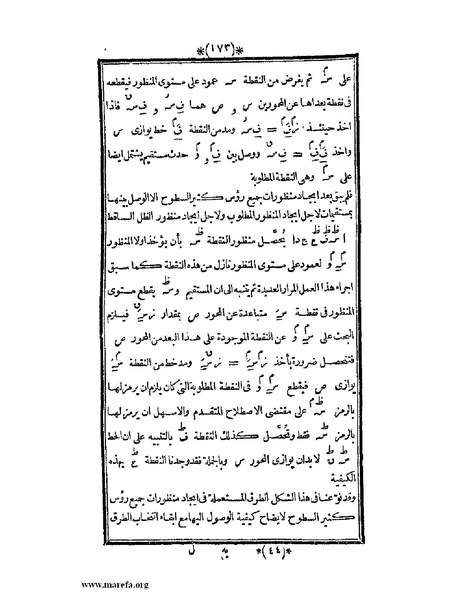 *(١٧٣)*
على ثم يفرض من النقطة عمود على مستوى المنظور فيقطعه
فى نقطة بعداها عن المحورين س و ص هما و فاذا
اخذ حينئذ = ومد من النقطة خط يوازى س
واخذ = ووصل بين و حدث مستقيم يشتمل ايضا
على وهى النقطة المطلوبة
فلم يبق بعد ايجاد منظورات جميع رؤس كثير السطوح الا الوصل بينها
بمستقيمات لاجل ايجاد المنظور المطلوب ولاجل ايجاد منظور الظل الساقط
يحصل منظور النقطة بأن يؤخذ اولا المنظور
لعمود على مستوى المنظور نازل من هذه النقطة كما سبق
اجراء هذا العمل المرار العديدة ثم يتنبه الى ان المستقيم يقطع مستوى
المنظور فى نقطة متباعدة عن المحور ص بمقدار فيلزم
البحث على عن النقطة الموجودة على هذا البعد من المحور ص
فتتحصل ضرورة بأخذ = ومد خط من النقطة
يوازى ص فيقطع فى النقطة المطلوبة التى كان يلزم ان يرمز لها
بالرمز على مقتضى الاصطلاح المتقدم والاسهل ان يرمز لها
بالرمز فقط وتحصل كذلك النقطة بالتنبيه على ان الخط
لا بد ان يوازى المحور س وبالجملة فقد وجدنا النقطة بهذه
الكيفية
وقد نوعنا فى هذا الشكل الطرق المستعملة فى ايجاد منظورات جميع رؤس
كثير السطوح لايضاح كيفية الوصول اليها مع ابقاء انتخاب الطرق
*(٤٤)* يه ل
www.marefa.org